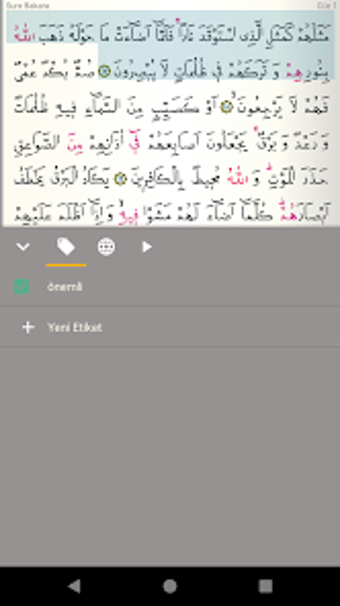 Sure Bakara Cüz 1
مَثَلُهُمْ كَمَثَلِ الَّذِي اسْتَوْقَدَ نَارًا ۚ فَلَمَّا أَضَاءَتْ مَا حَوْلَهُ ذَهَبَ اللّٰهُ
بِنُورِهِمْ وَ تَرَكَهُمْ فِي ظُلُمَاتٍ لَا يُبْصِرُونَ ۞ صُمٌّ بُكْمٌ عُمْيٌ
فَهُمْ لَا يَرْجِعُونَ ۞ أَوْ كَصَيِّبٍ مِنَ السَّمَاءِ فِيهِ ظُلُمَاتٌ
وَ رَعْدٌ وَ بَرْقٌ ۚ يَجْعَلُونَ أَصَابِعَهُمْ فِي آذَانِهِمْ مِنَ الصَّوَاعِقِ
حَذَرَ الْمَوْتِ ۚ وَ اللّٰهُ مُحِيطٌ بِالْكَافِرِينَ ۞ يَكَادُ الْبَرْقُ يَخْطَفُ
أَبْصَارَهُمْ ۚ كُلَّمَا أَضَاءَ لَهُمْ مَشَوْا فِيهِ ۙ وَ إِذَا أَظْلَمَ عَلَيْهِمْ
önemli
Yeni Etiket